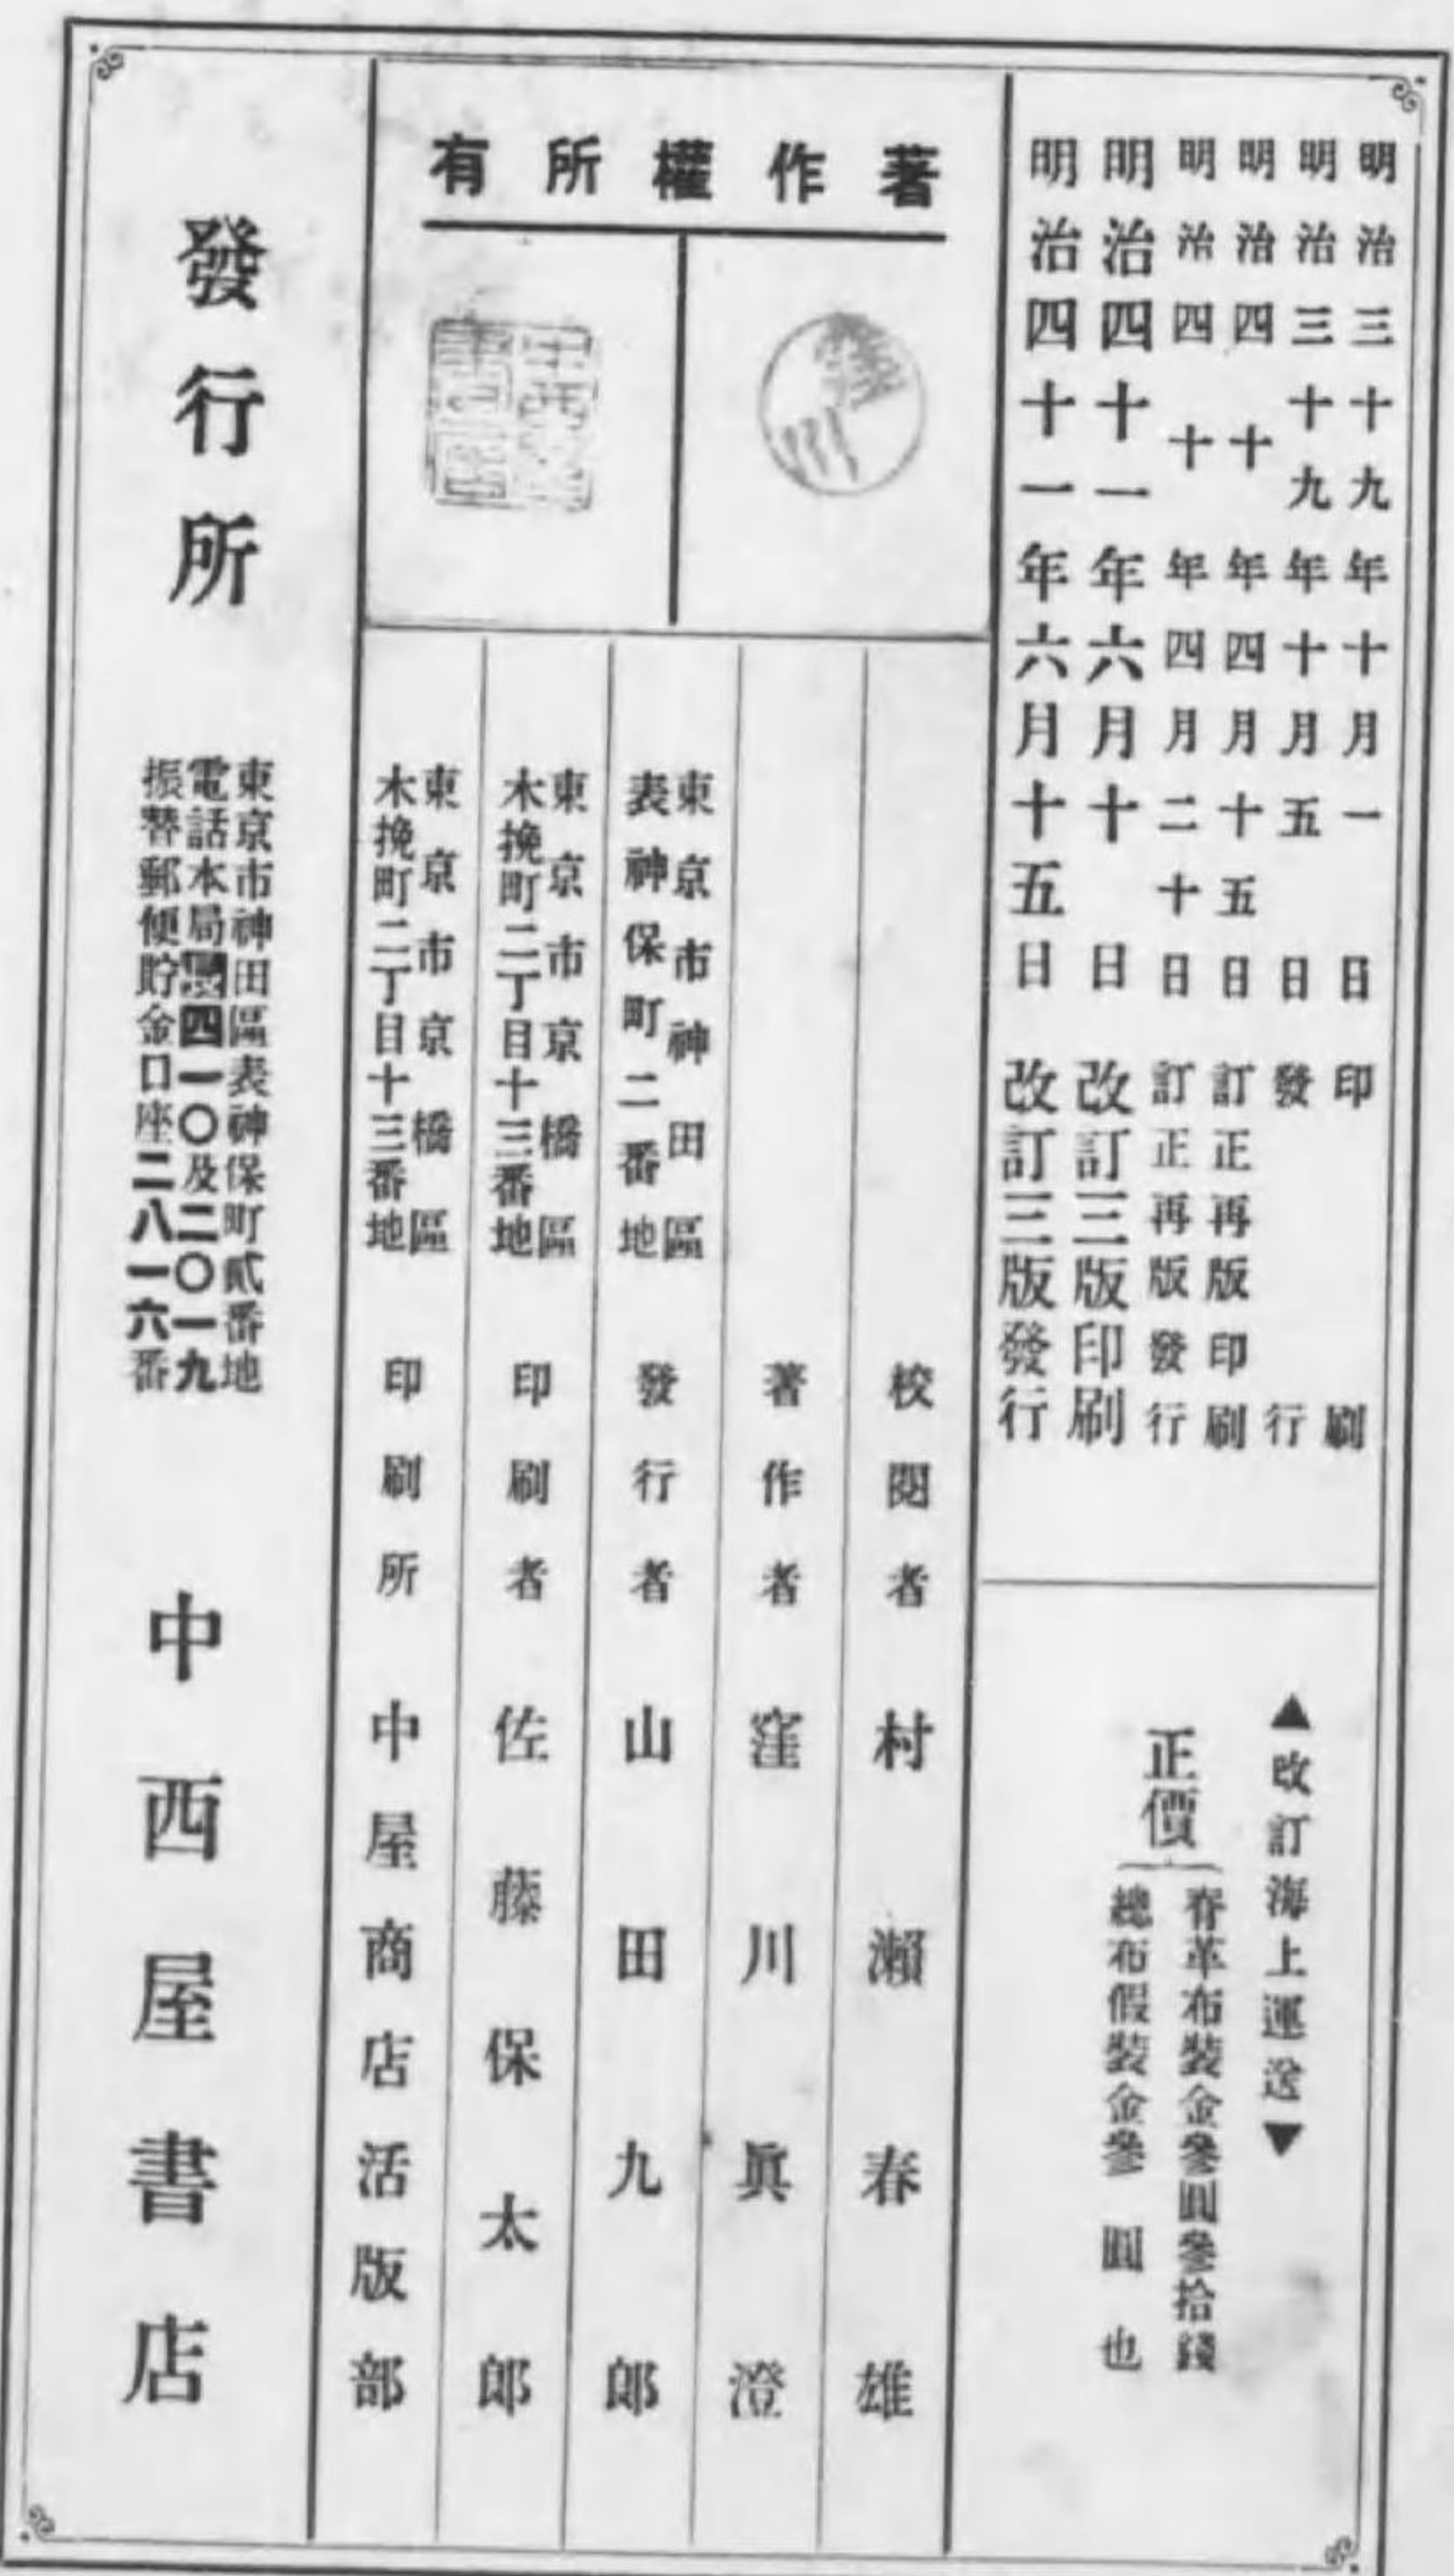 明治三十九年十月一日印刷
明治三十九年十月五日發行
明治四十年四月十五日訂正再版印刷
明治四十年四月二十日訂正再版發行
明治四十一年六月十日改訂三版印刷
明治四十一年六月十五日改訂三版發行
▲改訂海上運送▼
正價
脊革布裝金參圓參拾錢
總布假裝金參圓也
著作權所有
窪川
校閱者 村瀨春雄
著作者 窪川眞澄
東京市神田區
表神保町二番地
發行者 山田九郎
東京市京橋區
木挽町二丁目十三番地
印刷者 佐藤保太郎
東京市京橋區
木挽町二丁目十三番地
印刷所 中屋商店活版部
發行所
東京市神田區表神保町貳番地
電話本局四一〇及二〇一九
振替郵便貯金口座二八一六番
中西屋書店